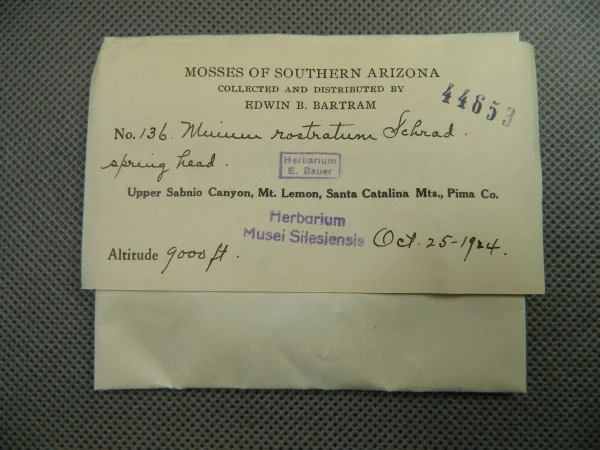 MOSSES OF SOUTHERN ARIZONA
COLLECTED AND DISTRIBUTED BY
EDWIN B. BARTRAM
44653
No. 136. Mnium rostratum Schrad.
spring head.
Herbarium
E. Bauer
Upper Sabnio Canyon, Mt. Lemon, Santa Catalina Mts., Pima Co.
Herbarium
Musei Silesiensis
Oct. 25-1924.
Altitude 9000 ft.